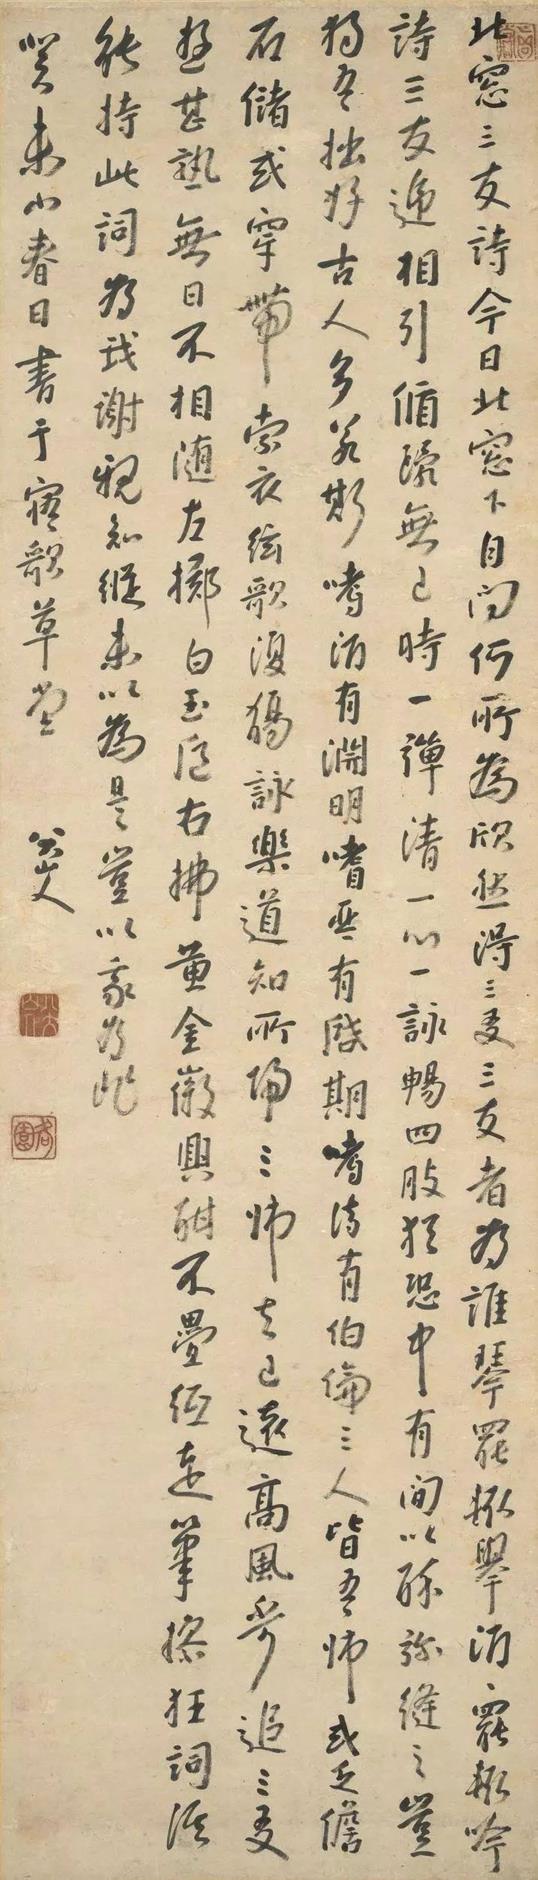 北窓三友詩今日北窓下自问何所為欣然得三友三友者为誰琴罷輒舉酒〻罷輒吟
詩三友遞相引循環無已時一彈清一心一詠暢四肢猶恐中有間以酔弥縫之豈
獨吾拙好古人多若斯嗜酒有淵明嗜琴有啟期嗜诗有伯倫三人皆吾師或乏儋
石儲或穿帶索衣絃歌復觴詠樂道知所歸三師去已遠高風不可追三友
游甚熟無日不相随左擲白玉卮右拂黄金徽興酣不疊紙走筆操狂詞誰
能持此詞为我謝親知縱未以為是豈以我为非
癸未小春日書于寤歌草堂
八大山人